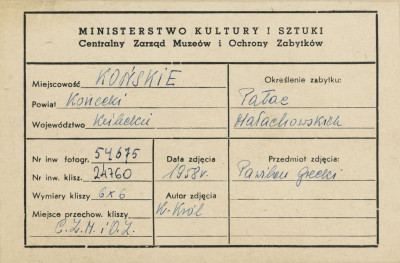 MINISTERSTWO KULTURY I SZTUKI
Centralny Zarząd Muzeów i Ochrony Zabytków
Miejscowość KOŃSKIE
Powiat Konecki
Województwo Kieleckie
Określenie zabytku:
Pałac
Małachowskich
Nr inw fotogr. 54675
Nr inw. klisz. 24760
Wymiary kliszy 6x6
Miejsce przechow. kliszy
C.Z.M. i O.Z.
Data zdjęcia
1958 r.
Autor zdjęcia
K. Król
Przedmiot zdjęcia:
Pawilon grecki